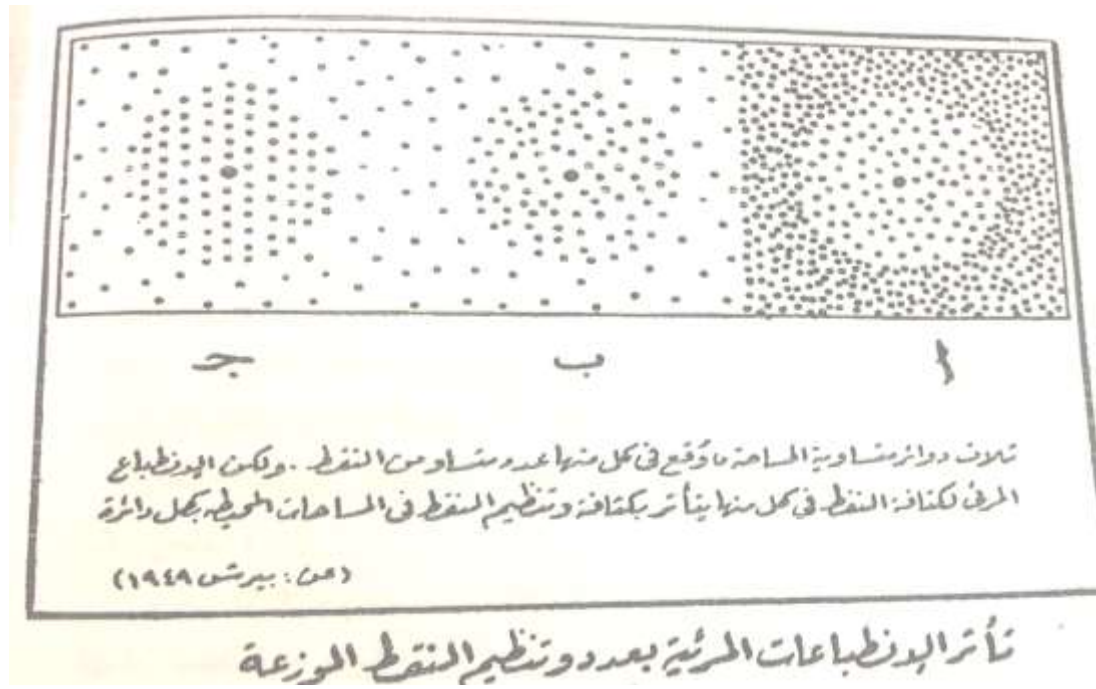 أ ب جـ
ثلاث دوائر متساوية المساحة ما وقع في كل منها عدد متساو من النقط . ولكن الانطباع
المرئى لكثافة النقط في كل منها يتأثر بكثافة وتنظيم النقط فى المساحات المحيطه بكل دائرة
(عن : بيرتش ١٩٤٩)
تأثر الانطباعات المرئية بعدد وتنظيم النقط الموزعة